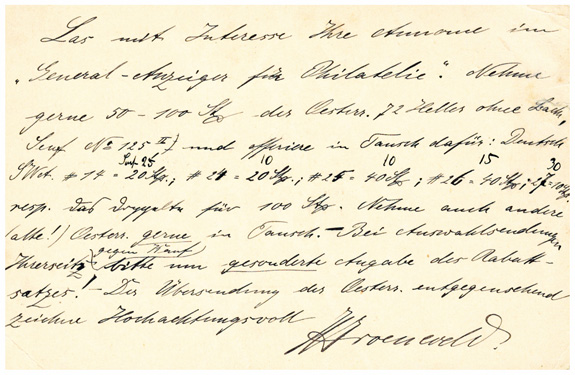 Las mit Interesse Ihre Annonce im
„General-Anzeiger für Philatelie“. Nehme
gerne 50-100 Stk der Oesterr. 72 Heller ohne
Senf No 125 II) und offeriere in Tausch dafür: Deutsch
Senf 25 10 10 15 30
# 14 = 20 Stk.; # 24 = 20 Stk.; # 25 = 40 Stk; # 26 = 40 Stk; 27 = 10 Stk,
resp. das doppelte für 100 Stk. Nehme auch andere
(alte!) Oesterr. gerne in Tausch. - Bei Auswahlsendungen
gegen Kauf
Ihrerseits bitte um gesonderte Angabe des Rabatt-
satzes! - Der Übersendung der Oesterr. entgegensehend
zeichne Hochachtungsvoll
Groeneveld.